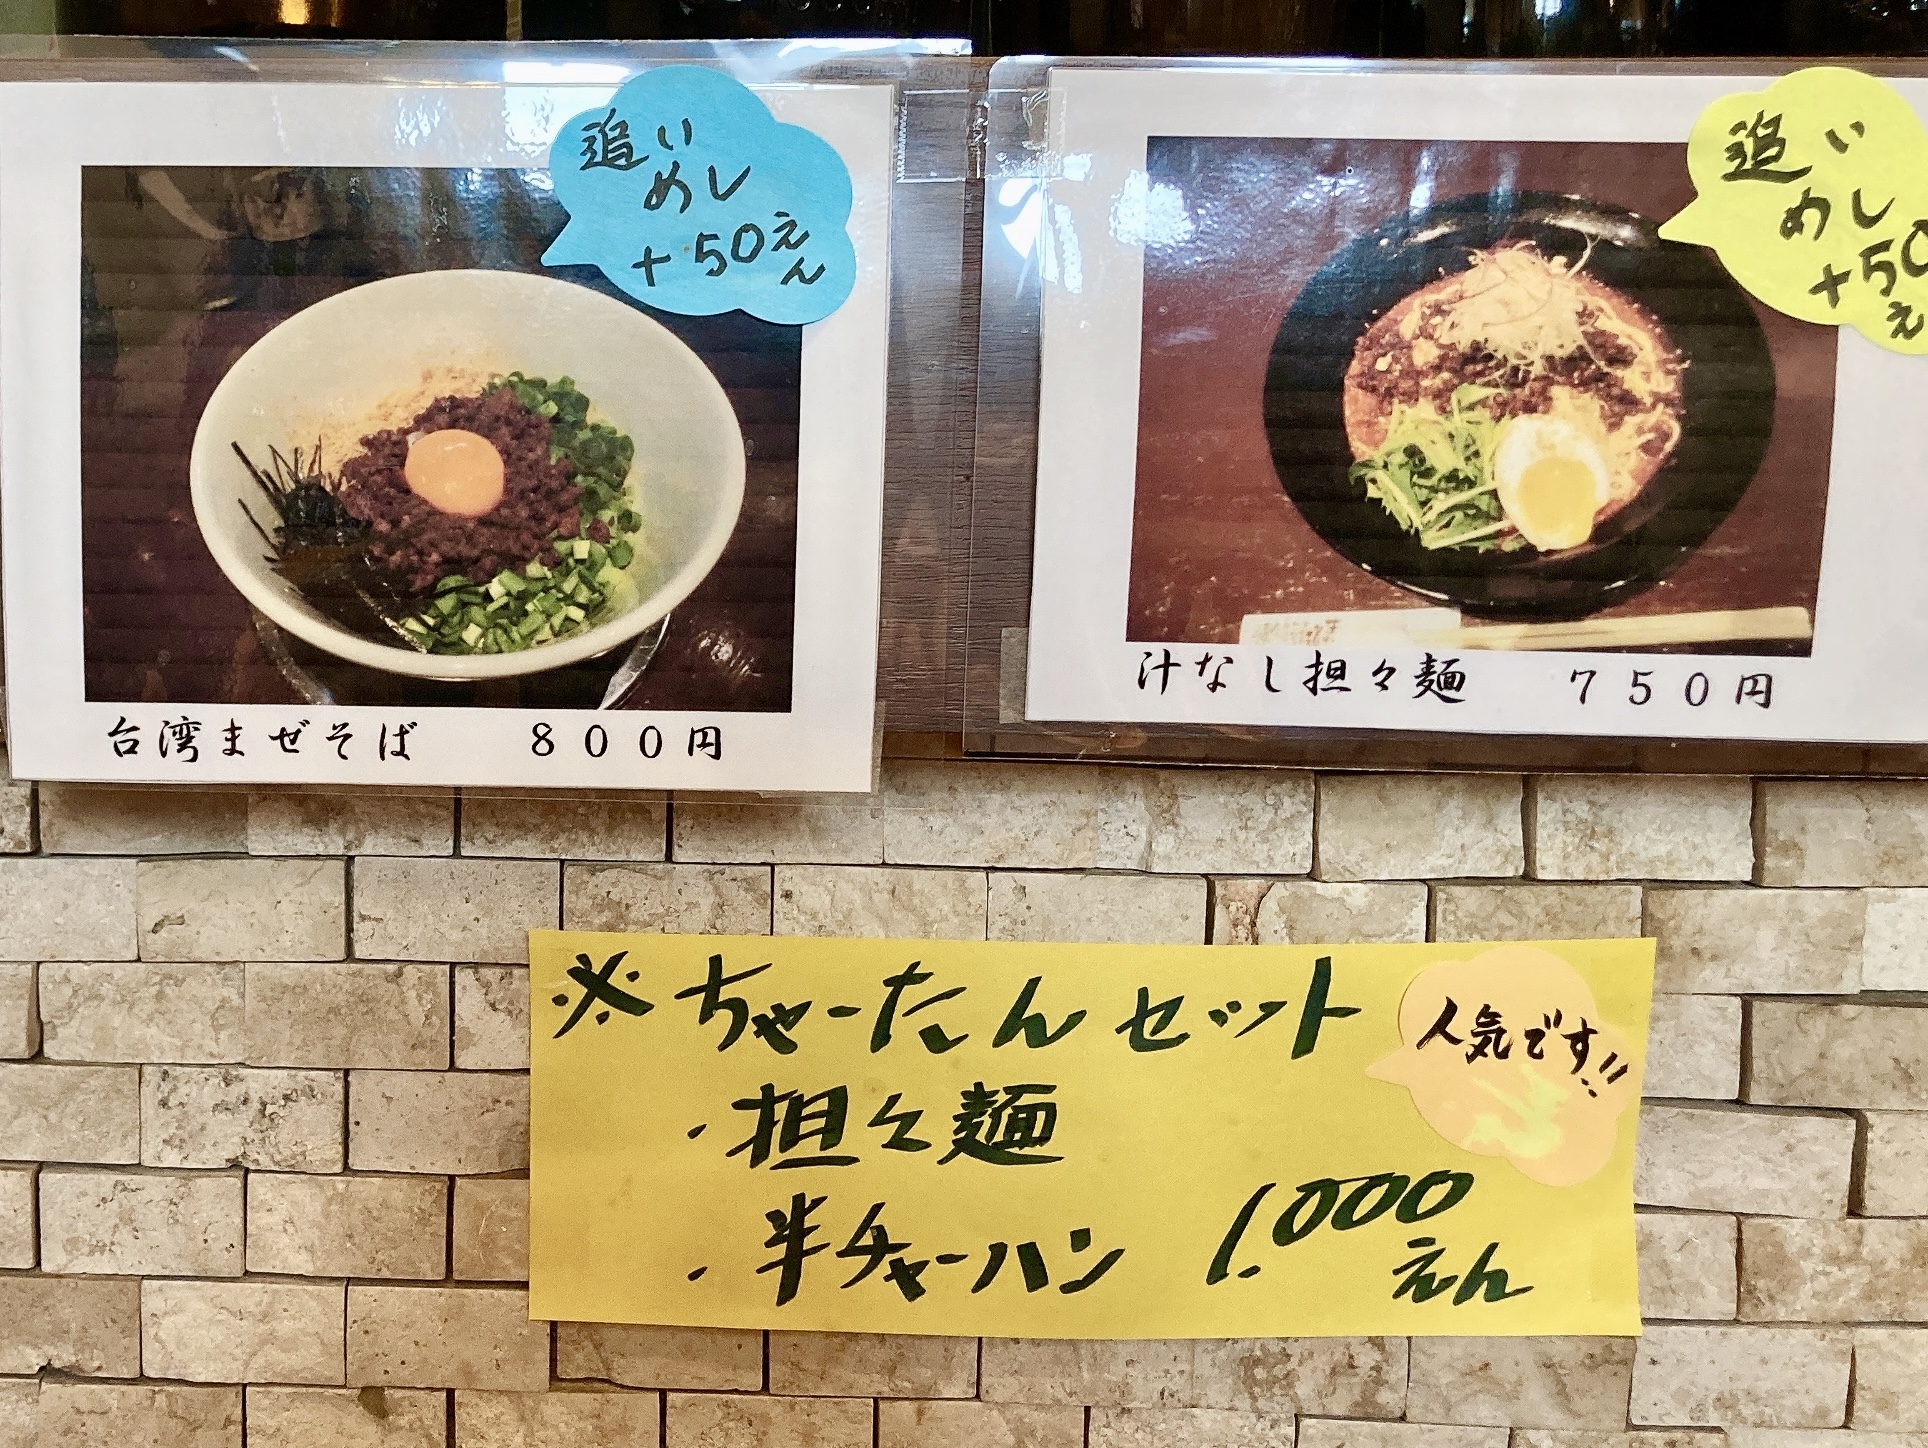 追い
めし
+50えん
台湾まぜそば　８００円
追い
めし
+50
え
汁なし担々麺　７５０円
※ちゃーたんセット
人気です!!
・担々麺
・半チャーハン 1.000
えん